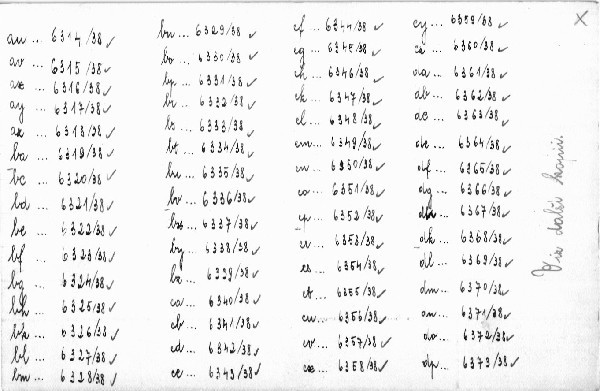 au ... 6314/38 ✓
av ... 6315/38 ✓
ax ... 6316/38 ✓
ay ... 6317/38 ✓
az ... 6318/38 ✓
ba ... 6319/38 ✓
bc ... 6320/38 ✓
bd ... 6321/38 ✓
be ... 6322/38 ✓
bf ... 6323/38 ✓
bg ... 6324/38 ✓
bh ... 6325/38 ✓
bk ... 6326/38 ✓
bl ... 6327/38 ✓
bm ... 6328/38 ✓
bn ... 6329/38 ✓
bo ... 6330/38 ✓
bp ... 6331/38 ✓
br ... 6332/38 ✓
bs ... 6333/38 ✓
bt ... 6334/38 ✓
bu ... 6335/38 ✓
bv ... 6336/38 ✓
bx ... 6337/38 ✓
by ... 6338/38 ✓
bz ... 6339/38 ✓
ca ... 6340/38 ✓
cb ... 6341/38 ✓
cd ... 6342/38 ✓
ce ... 6343/38 ✓
cf ... 6344/38 ✓
cg ... 6345/38 ✓
ch ... 6346/38 ✓
ck ... 6347/38 ✓
cl ... 6348/38 ✓
cm ... 6349/38 ✓
cn ... 6350/38 ✓
co ... 6351/38 ✓
cp ... 6352/38 ✓
cr ... 6353/38 ✓
cs ... 6354/38 ✓
ct ... 6355/38 ✓
cu ... 6356/38 ✓
cv ... 6357/38 ✓
cx ... 6358/38 ✓
cy ... 6359/38 ✓
cz ... 6360/38 ✓
da ... 6361/38 ✓
db ... 6362/38 ✓
dc ... 6363/38 ✓
de ... 6364/38 ✓
df ... 6365/38 ✓
dg ... 6366/38 ✓
dh ... 6367/38 ✓
dk ... 6368/38 ✓
dl ... 6369/38 ✓
dm ... 6370/38 ✓
dn ... 6371/38 ✓
do ... 6372/38 ✓
dp ... 6373/38 ✓
X
Viz další kopii.